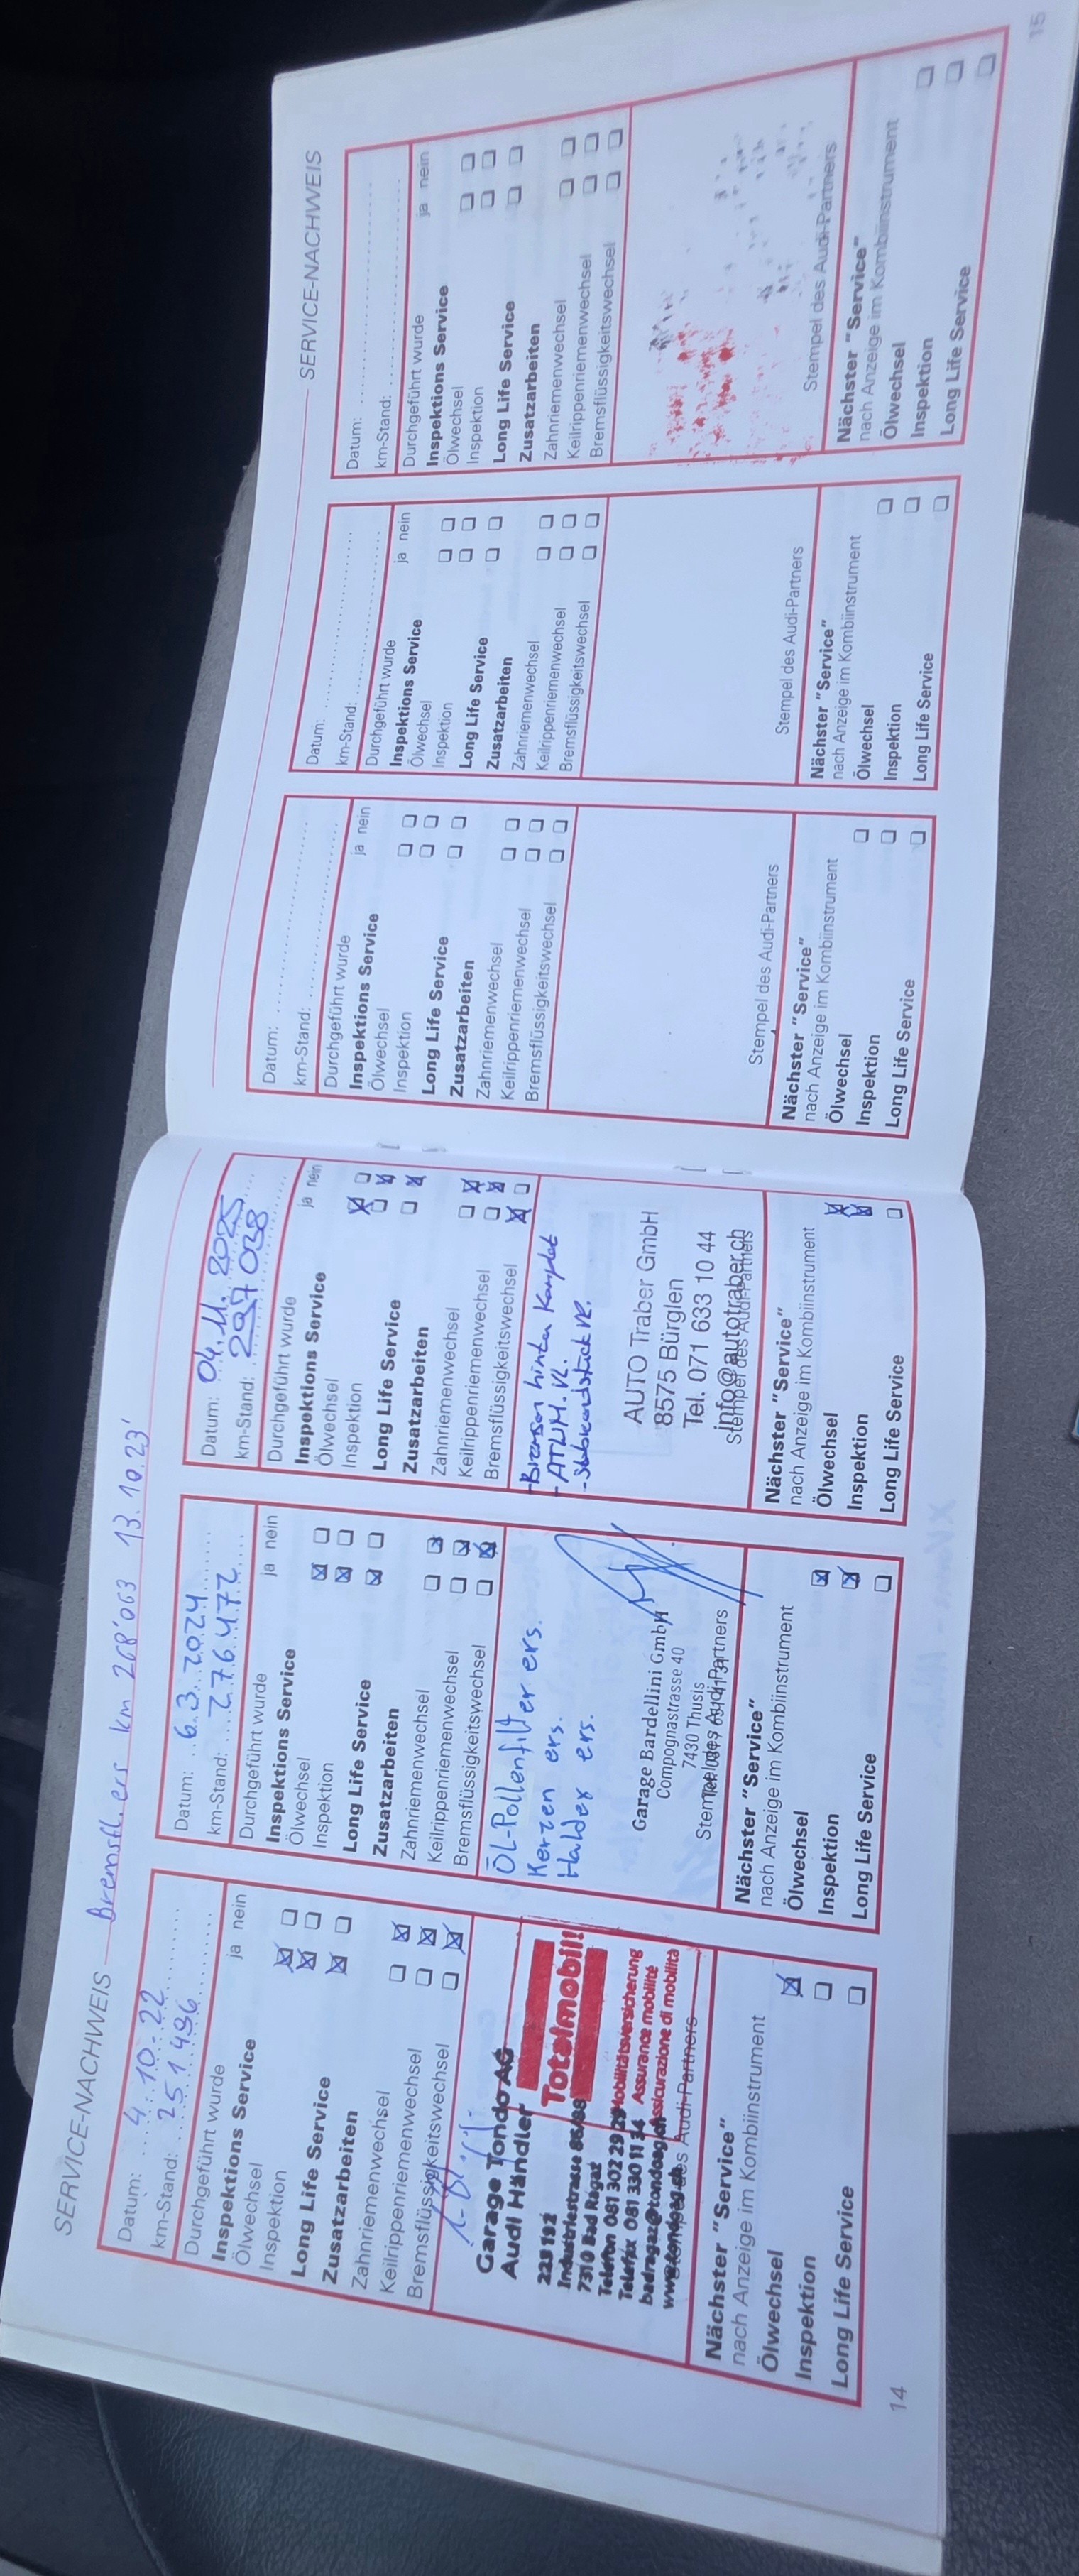 SERVICE-NACHWEIS
Bremsfl. ers km 268'063 13.10.23'
Datum: 4.10.22
km-Stand: 251 496
Durchgeführt wurde
ja nein
Inspektions Service
Ölwechsel
Inspektion
Long Life Service
Zusatzarbeiten
Zahnriemenwechsel
Keilrippenriemenwechsel
Bremsflüssigkeitswechsel
Garage Tondo AG
Audi Händler
223 192
Industriestrasse 86/88
7310 Bad Ragaz
Telefon 081 302 29 29
Telefax 081 330 11 34
badragaz@tondoag.ch
www.tondoag.ch
Totalmobil!
Mobilitätsversicherung
Assurance mobilité
Assicurazione di mobilità
Stempel des Audi-Partners
Nächster "Service"
nach Anzeige im Kombiinstrument
Ölwechsel
Inspektion
Long Life Service
14
Datum: 6.3.2024
km-Stand: 276.472
Durchgeführt wurde
ja nein
Inspektions Service
Ölwechsel
Inspektion
Long Life Service
Zusatzarbeiten
Zahnriemenwechsel
Keilrippenriemenwechsel
Bremsflüssigkeitswechsel
ÖL-Pollenfilter ers.
Kerzen ers.
Halder ers.
Garage Bardellini GmbH
Compognastrasse 40
7430 Thusis
Stempel des Audi-Partners
Nächster "Service"
nach Anzeige im Kombiinstrument
Ölwechsel
Inspektion
Long Life Service
Datum: 04.11.2025
km-Stand: 297 038
Durchgeführt wurde
ja nein
Inspektions Service
Ölwechsel
Inspektion
Long Life Service
Zusatzarbeiten
Zahnriemenwechsel
Keilrippenriemenwechsel
Bremsflüssigkeitswechsel
-Bremsen hinten Komplet
-ATLM. VL.
VR.
AUTO Traber GmbH
8575 Bürglen
Tel. 071 633 10 44
info@autotraber.ch
Stempel des Audi-Partners
Nächster "Service"
nach Anzeige im Kombiinstrument
Ölwechsel
Inspektion
Long Life Service
SERVICE-NACHWEIS
Datum:
km-Stand:
Durchgeführt wurde
ja nein
Inspektions Service
Ölwechsel
Inspektion
Long Life Service
Zusatzarbeiten
Zahnriemenwechsel
Keilrippenriemenwechsel
Bremsflüssigkeitswechsel
Stempel des Audi-Partners
Nächster "Service"
nach Anzeige im Kombiinstrument
Ölwechsel
Inspektion
Long Life Service
Datum:
km-Stand:
Durchgeführt wurde
ja nein
Inspektions Service
Ölwechsel
Inspektion
Long Life Service
Zusatzarbeiten
Zahnriemenwechsel
Keilrippenriemenwechsel
Bremsflüssigkeitswechsel
Stempel des Audi-Partners
Nächster "Service"
nach Anzeige im Kombiinstrument
Ölwechsel
Inspektion
Long Life Service
Datum:
km-Stand:
Durchgeführt wurde
ja nein
Inspektions Service
Ölwechsel
Inspektion
Long Life Service
Zusatzarbeiten
Zahnriemenwechsel
Keilrippenriemenwechsel
Bremsflüssigkeitswechsel
Stempel des Audi-Partners
Nächster "Service"
nach Anzeige im Kombiinstrument
Ölwechsel
Inspektion
Long Life Service
15